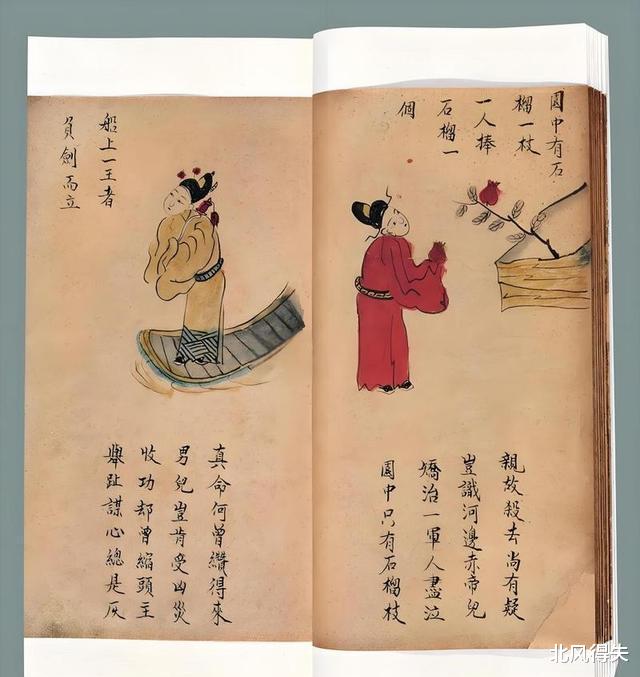 園中有石
榴一枝
一人捧
石榴一
個
親故殺去尚有疑
豈識河邊赤帝兒
矯治一軍人盡泣
園中只有石榴枝
船上一王者
負劍而立
真命何曾纘得來
男兒豈肯受凶災
收功却曾縮頭主
舉趾謀心總是灰
北风得失